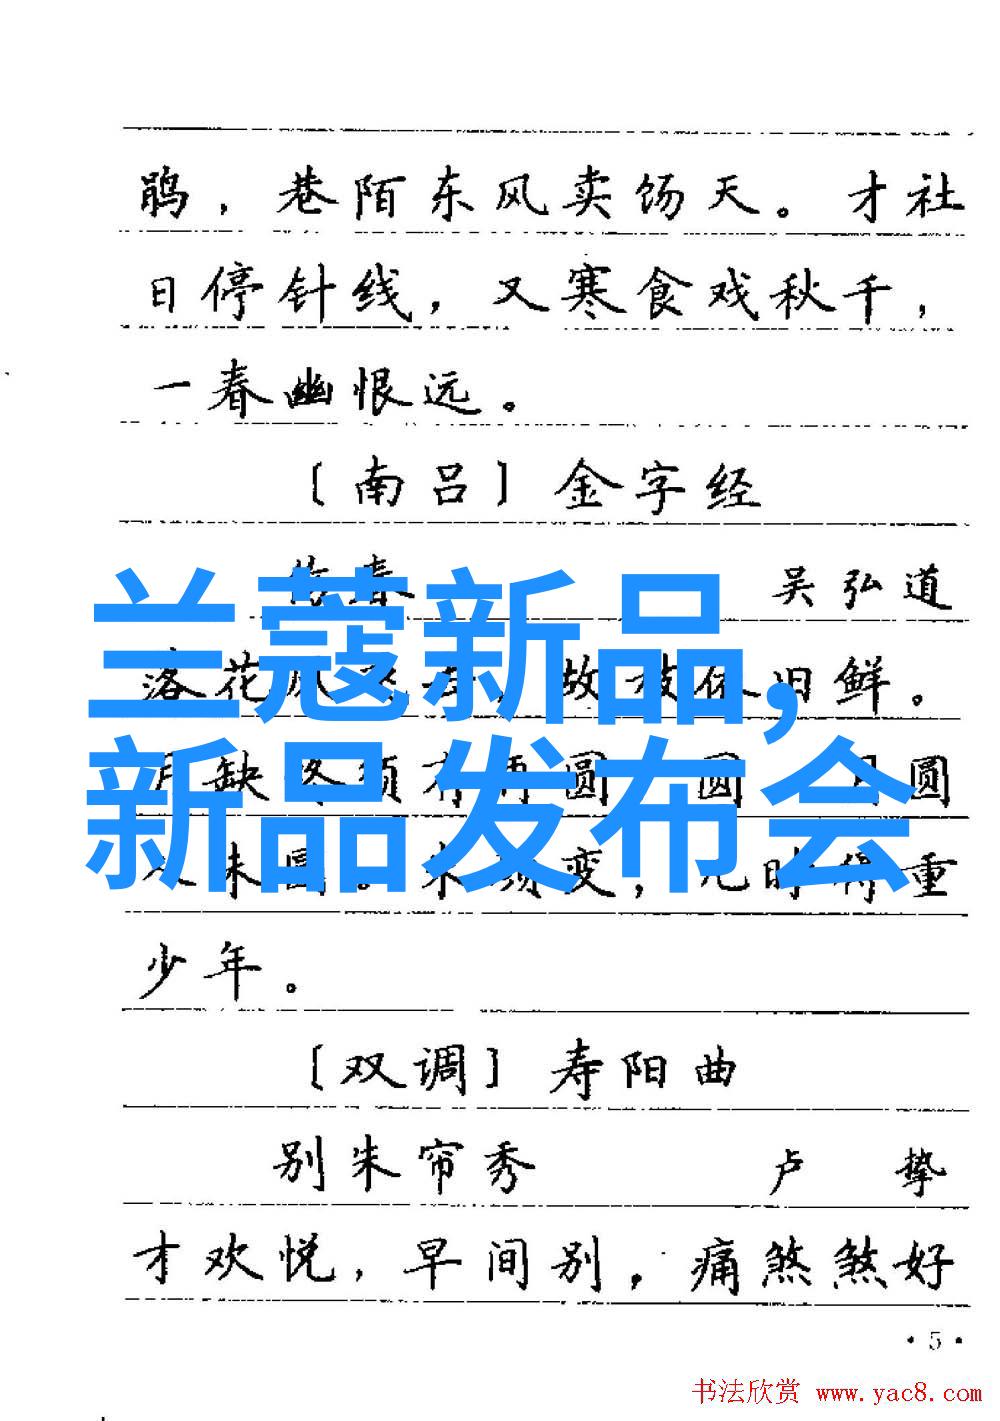 鹃，巷陌东风卖饧天。才社
日停针线，又寒食戏秋千，
一春幽恨远。
〔南吕〕金字经
春 吴弘道
落花 故枝休旧鲜。
兰蔻新品，
缺终须有 圆 圆 月圆
新品发布会
未圆。 变， 时得重
少年。
〔双调〕寿阳曲
别朱帘秀 卢 挚
才欢悦，早间别，痛煞煞好
·5·
书法欣赏 www.yac8.com